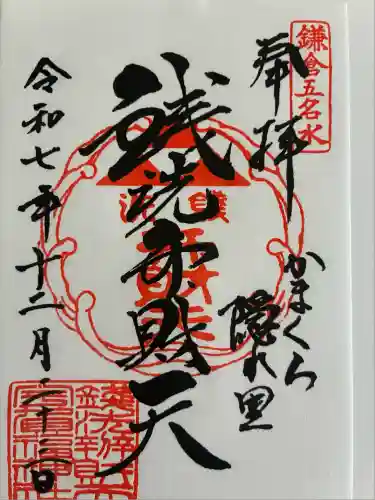 鎌倉五名水
奉拝
かまくら
隠れ里
銭洗弁財天
令和七年十二月二十三日